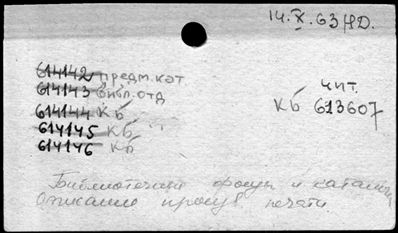 14.X.63/НД.
614142 предм.кат
614143 библ.отд
614144 КБ
614145 КБ
614146 КБ
чит.
КБ 613607
Библиотечные фонды и каталоги
Описание произв печати